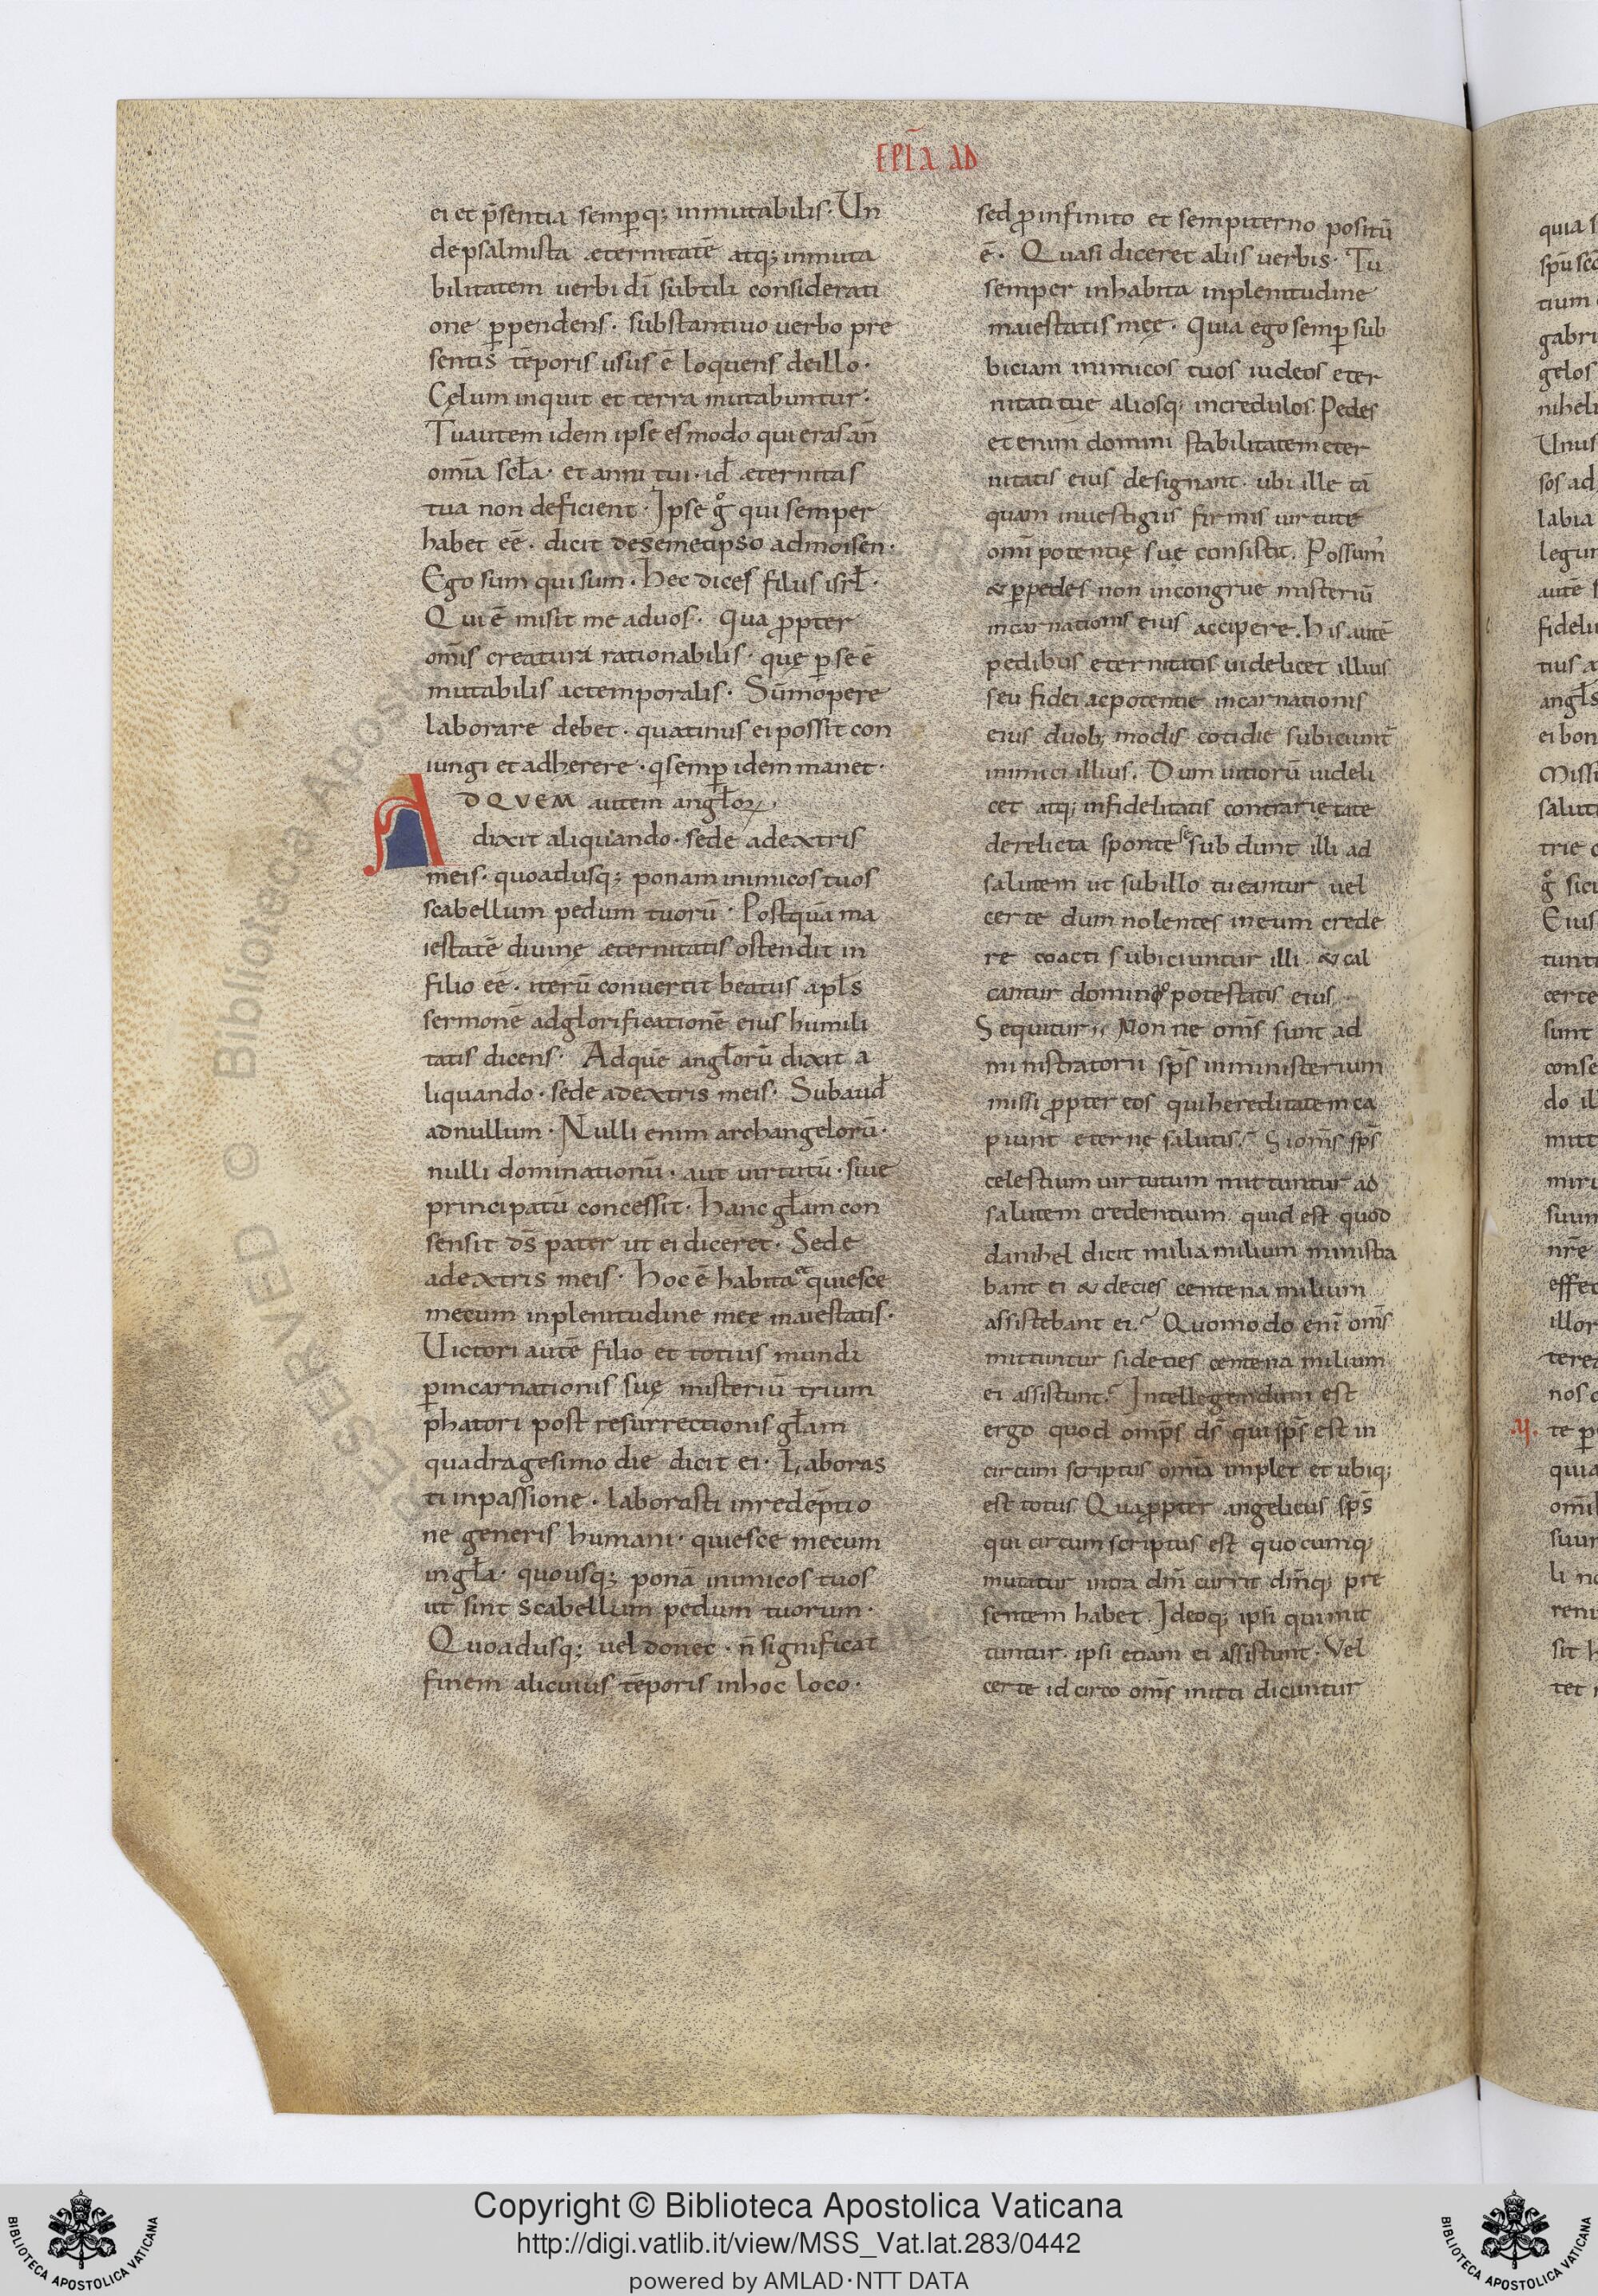 EPLA AD
ei et p̄sentia semꝑq; inmutabilis. Un
de psalmista æternitatē atq; inmuta
bilitatem uerbi dī subtili considerati
one ꝑpendens. substantiuo uerbo pre
sentis tēporis usus ē loquens de illo.
Cęlum inquit et terra mutabuntur.
Tu autem idem ipse es modo qui eras an̄
omīa sc̄la. et anni tui. id̄ æternitas
tua non deficient. Ipse gͦ qui semper
habet eē. dicit de semetipso ad moisen.
Ego sum qui sum. Hec dices filiis isrl̄.
Qui ē misit me ad uos. Qua ꝓpter
omīs creatura rationabilis. quę ꝑ se ē
mutabilis ac temporalis. Sūmopere
laborare debet. quatinus ei possit con
iungi et adherere. q semꝑ idem manet.
AD QVEM autem angl̄oꝝ
dixit aliquando. sede a dextris
meis. quoadusq; ponam inimicos tuos
scabellum pedum tuorū. Postquā ma
iestatē diuinę æternitatis ostendit in
filio eē. iterū conuertit beatus apl̄s
sermonē ad glorificationē eius humili
tatis dicens. Ad quē angl̄orū dixit a
liquando. sede a dextris meis. Subaud̄
ad nullum. Nulli enim archangelorū.
nulli dominationū. aut uirtutū. siue
principatū concessit. Hanc gl̄am con
sensit ds̄ pater ut ei diceret. Sede
a dextris meis. Hoc ē habita et quiesce
mecum in plenitudine meę maiestatis.
Uictori autē filio et totius mundi
ꝑ incarnationis suę misteriū trium
phatori post resurrectionis gl̄am
quadragesimo die dicit ei. Laboras
ti in passione. laborasti in redēptio
ne generis humani. quiesce mecum
in gl̄a. quousq; ponā inimicos tuos
ut sint scabellum pedum tuorum.
Quoadusq; uel donec. n̄ significat
finem alicuius tēporis in hoc loco.
sed ꝓ infinito et sempiterno positū
ē. Quasi diceret aliis uerbis. Tu
semper inhabita in plenitudine
maiestatis meę. Quia ego semꝑ sub
biciam inimicos tuos iudeos eter
nitati tue aliosq; incredulos. Pedes
et enim domini stabilitatem eter
nitatis eius designant. ubi ille tā
quam in uestigiis firmis uirtute
omīpotentię suę consistit. Possum'
& ꝑ pedes non incongrue misteriū
incarnationis eius accipere. His autē
pedibus eternitatis uidelicet illius
seu fidei ac potentie incarnationis
eius duob; modis cotidie subiciunt̄
inimici illius. Dum uitiorū uideli
cet atq; infidelitatis contrarietate
derelicta sponte se subdunt illi ad
salutem ut sub illo tueantur uel
certe dum nolentes in eum crede
re coacti subiciuntur illi. & cal
cantur potestatis eius.
Sequitur. Non ne omīs sunt ad
ministratorii sp̄s in ministerium
missi ꝓpter eos qui hereditatem ca
piunt eternę salutis? Si omīs sp̄s
celestium uirtutum mittuntur ad
salutem credentium. quid est quod
danihel dicit milia milium ministra
bant ei & decies centena milium
assistebant ei? Quomodo enī omīs
mittuntur si decies centena milium
ei assistunt? Intellegendum est
ergo quod omp̄s ds̄ qui sp̄s est in
circum scriptus omīa implet et ubiq;
est totus. Quaꝓpter angelicus sp̄s
qui circum scriptus est quocumq;
mutatur intra dm̄ currit dm̄q; pre
sentem habet. Ideoq; ipsi qui mit
tuntur. ipsi etiam ei assistunt. Vel
certe idcirco omīs mitti dicuntur
Copyright © Biblioteca Apostolica Vaticana
http://digi.vatlib.it/view/MSS_Vat.lat.283/0442
powered by AMLAD·NTT DATA
BIBLIOTECA APOSTOLICA VATICANA
BIBLIOTECA APOSTOLICA VATICANA